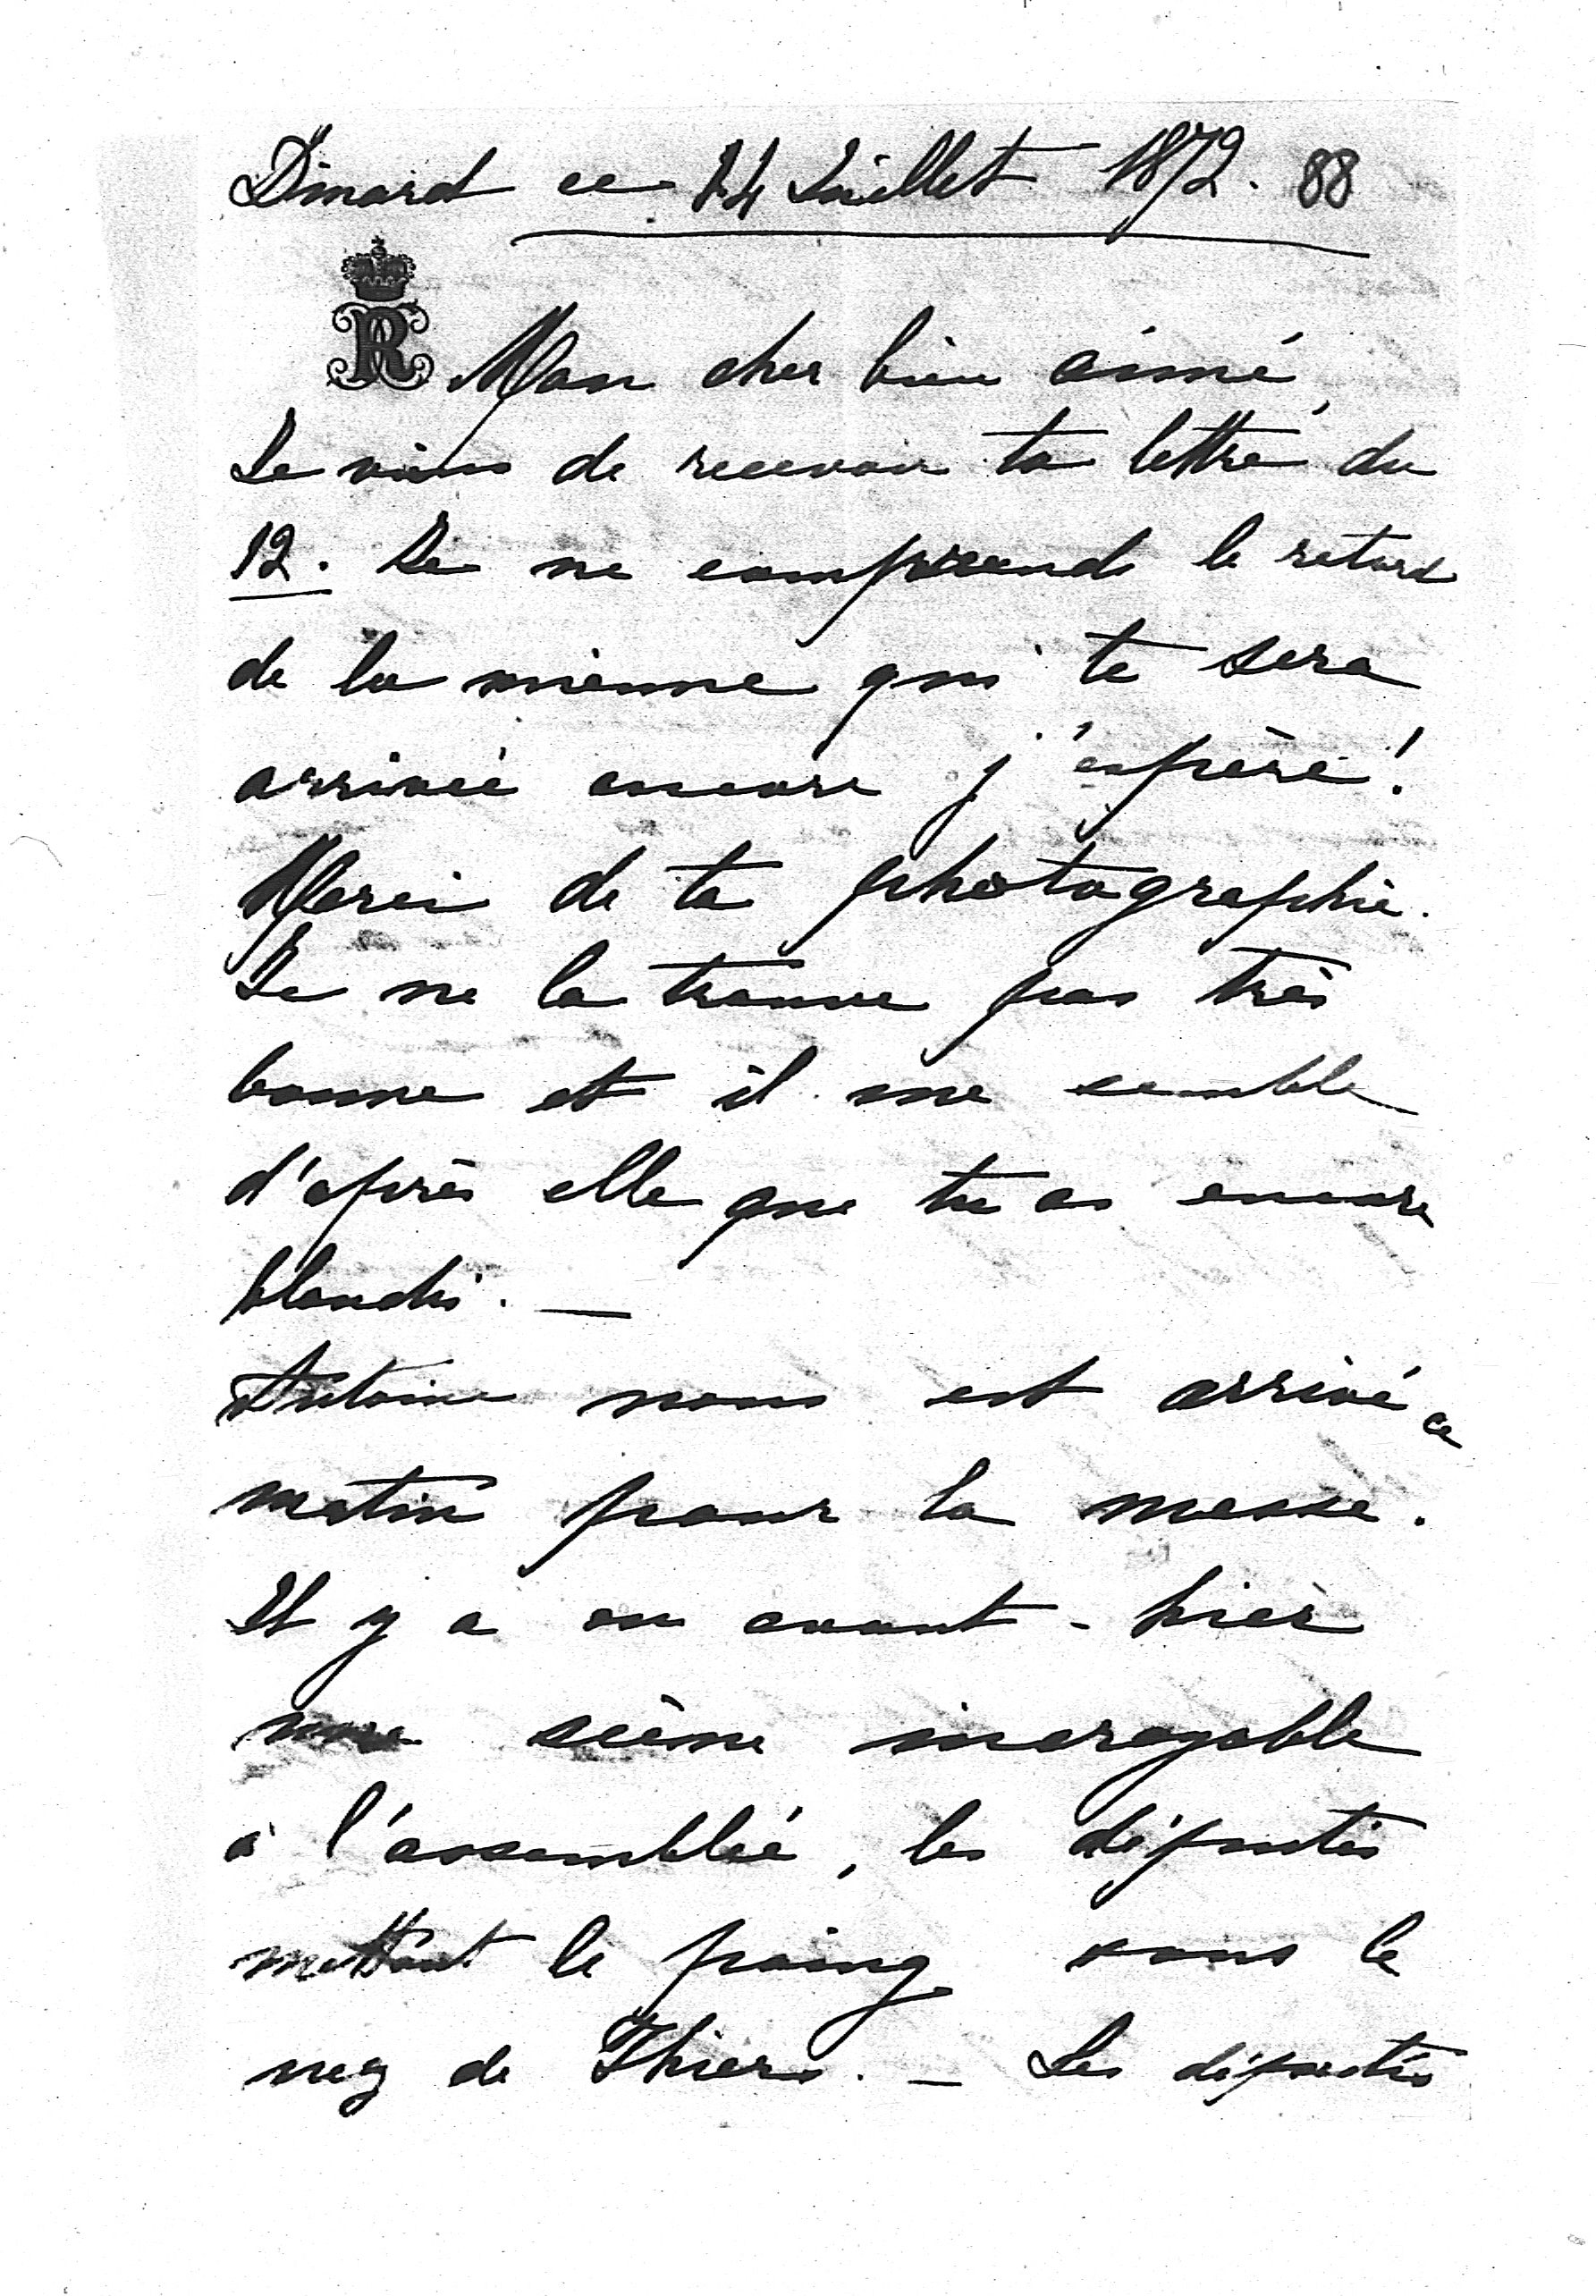 Dinard ce 14 Juillet 1872. 88
R Mon cher bien aimé,
Je viens de recevoir ta lettre du
12. Je ne comprends le retard
de la mienne qui te sera
arrivée encore j'espère!
Merci de ta photographie.
Je ne la trouve pas très
bonne et il me semble
d'après elle que tu as encore
blanchi. —
Antoine nous est arrivé ce
matin pour la messe.
Il y a eu avant-hier
une scène incroyable
à l'assemblée, les députés
mettant le poing sous le
nez de Thiers. — Les députés